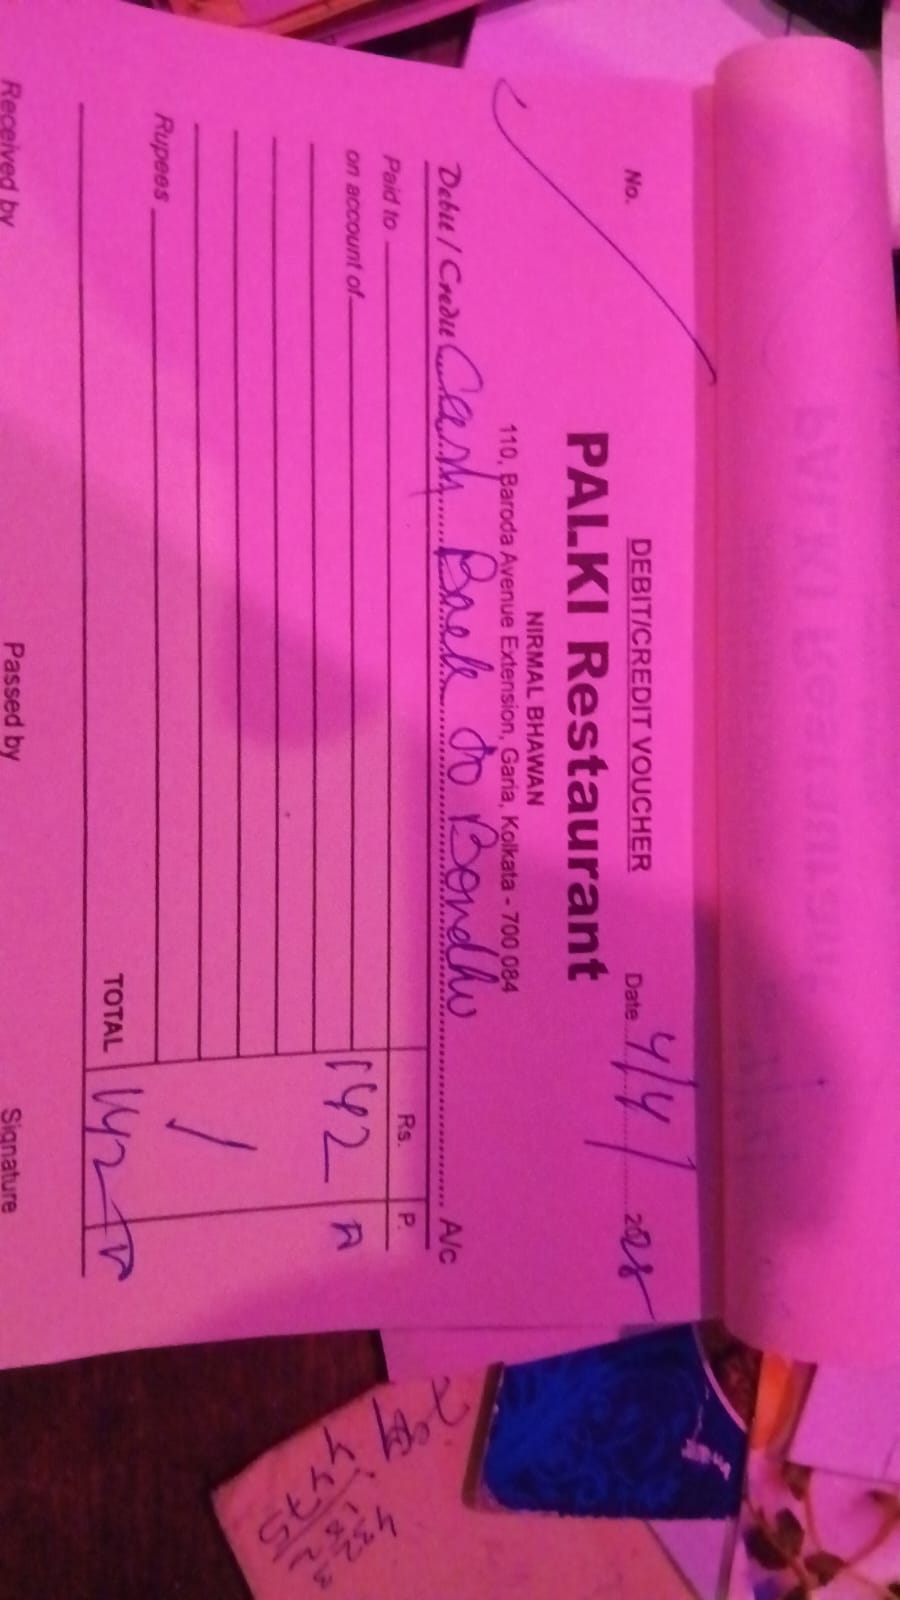 DEBIT/CREDIT VOUCHER
No. Date 4/4/ 2025
PALKI Restaurant
NIRMAL BHAWAN
110, Baroda Avenue Extension, Garia, Kolkata - 700 084
Debit / Credit Cash Back to Bondhu A/c
Paid to Rs. P.
on account of 142
Rupees
TOTAL 142
Received by Passed by Signature